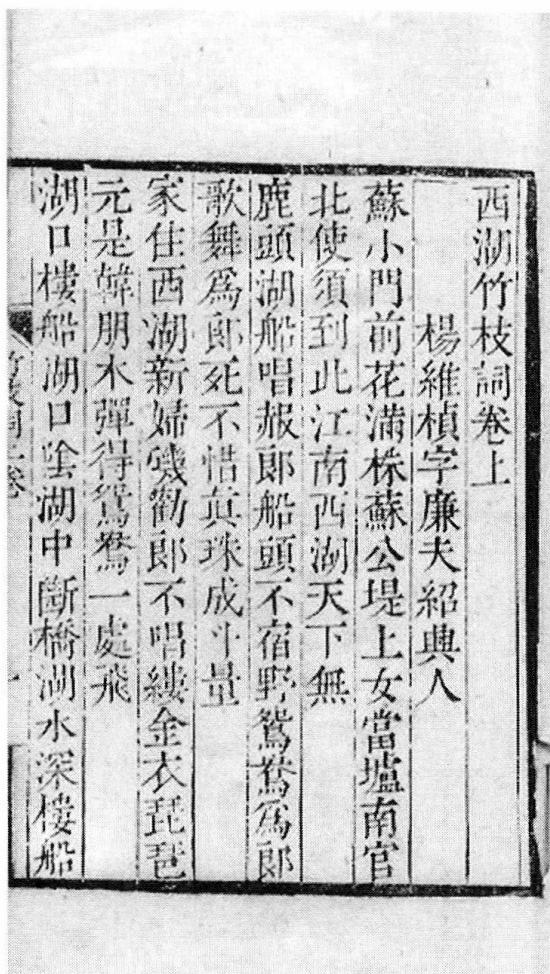 西湖竹枝詞卷上
楊維楨字廉夫紹興人
蘇小門前花滿株蘇公堤上女當壚南官
北使須到此江南西湖天下無
鹿頭湖船唱赧郎船頭不宿野鴛鴦為郎
歌舞為郎死不惜真珠成斗量
家住西湖新婦磯勸郎不唱縷金衣琵琶
元是韓朋木彈得鴛鴦一處飛
湖口樓船湖口陰湖中斷橋湖水深樓船